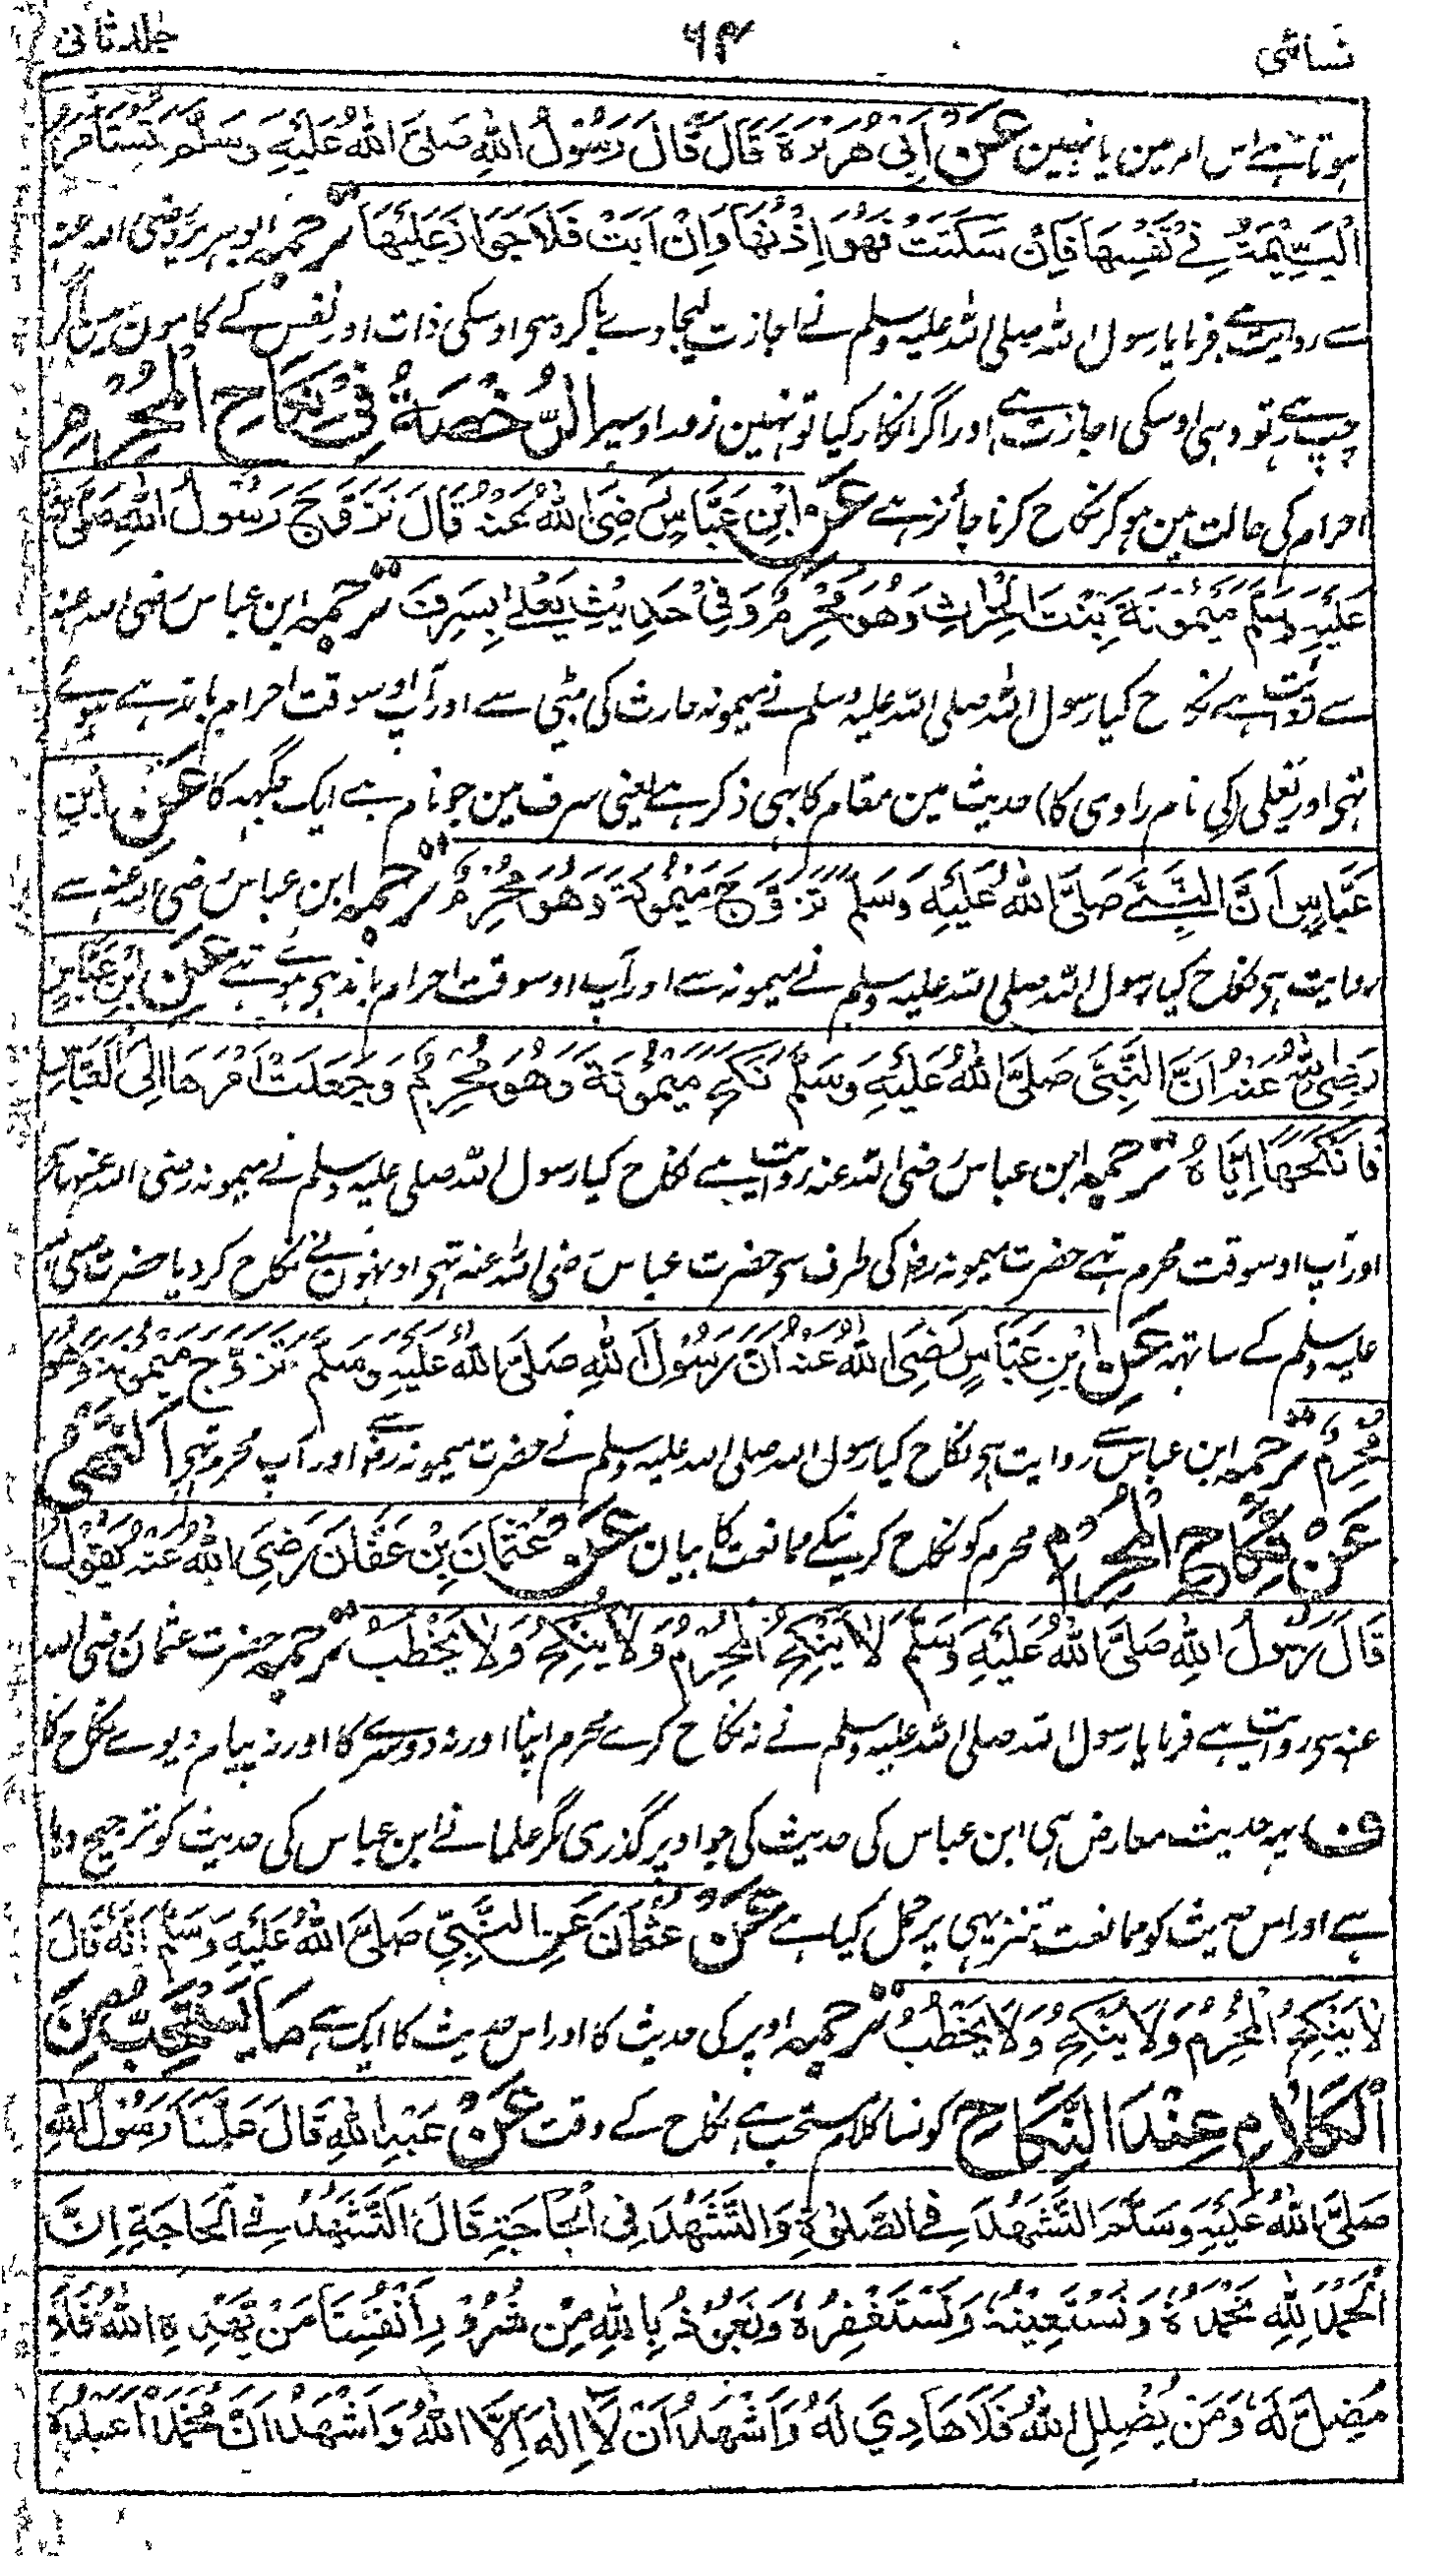 نسائی ۶۴ جلد ثانی
ہوتا ہے اس امر مین یا نہین عَنْ اَبِیْ هُرَیْرَةَ قَالَ قَالَ رَسُوْلُ اللّٰهِ صَلَّی اللّٰهُ عَلَیْهِ وَسَلَّمَ تُسْتَأْمَرُ
الْیَتِیْمَةُ فِیْ نَفْسِهَا فَاِنْ سَكَتَتْ فَهُوَ اِذْنُهَا وَاِنْ اَبَتْ فَلَا جَوَازَ عَلَیْهَا ترجمہ ابو ہریرہ رضی اللہ عنہ
سے روایت ہے فرمایا رسول اللہ صلی اللہ علیہ وسلم نے اجازت لیجاوے باکرہ سی اوسکی ذات اور نفس کے کامون مین اگر
چپ رہے تو وہی اوسکی اجازت ہے اور اگر انکار کیا تو نہین زور اوسپر الرُّخْصَةُ فِیْ نِكَاحِ الْمُحْرِمِ
احرام کی حالت مین ہوکر نکاح کرنا جائز ہے عَنِ ابْنِ عَبَّاسٍ رَضِیَ اللّٰهُ عَنْهُ قَالَ تَزَوَّجَ رَسُوْلُ اللّٰهِ صَلَّی اللّٰهُ
عَلَیْهِ وَسَلَّمَ مَیْمُوْنَةَ بِنْتَ الْحَارِثِ وَهُوَ مُحْرِمٌ وَفِیْ حَدِیْثِ یَعْلٰی بِسَرِفَ ترجمہ ابن عباس رضی اللہ عنہ
سے روایت ہے نکاح کیا رسول اللہ صلی اللہ علیہ وسلم نے میمونہ حارث کی بیٹی سے اور آپ اوسوقت احرام باندہے ہوئے
تہی اور یعلی (کی نام راوی کا) حدیث مین مقام کا بہی ذکر ہے یعنی سرف مین جو نام ہے ایک جگہہ کا عَنِ ابْنِ
عَبَّاسٍ اَنَّ النَّبِیَّ صَلَّی اللّٰهُ عَلَیْهِ وَسَلَّمَ تَزَوَّجَ مَیْمُوْنَةَ وَهُوَ مُحْرِمٌ ترجمہ ابن عباس رضی اللہ عنہ سے
روایت ہی نکاح کیا رسول اللہ صلی اللہ علیہ وسلم نے میمونہ سے اور آپ اوسوقت احرام باندہی ہوئے تہے عَنِ ابْنِ عَبَّاسٍ
رَضِیَ اللّٰهُ عَنْهُ اَنَّ النَّبِیَّ صَلَّی اللّٰهُ عَلَیْهِ وَسَلَّمَ نَكَحَ مَیْمُوْنَةَ وَهُوَ مُحْرِمٌ وَجَعَلَتْ اَمْرَهَا اِلَی الْعَبَّاسِ
فَاَنْكَحَهَا اِیَّاهُ ترجمہ ابن عباس رضی اللہ عنہ روایت ہے نکاح کیا رسول اللہ صلی علیہ وسلم نے میمونہ رضی اللہ عنہا سے
اور آپ اوسوقت محرم تہے حضرت میمونہ رض کی طرف سی حضرت عباس رضی اللہ عنہ تہی اونہون نے نکاح کردیا حضرت صلی اللہ
علیہ وسلم کے ساتہہ عَنِ ابْنِ عَبَّاسٍ رَضِیَ اللّٰهُ عَنْهُ اَنَّ رَسُوْلَ اللّٰهِ صَلَّی اللّٰهُ عَلَیْهِ وَسَلَّمَ تَزَوَّجَ مَیْمُوْنَةَ وَهُوَ
مُحْرِمٌ ترجمہ ابن عباس سے روایت ہی نکاح کیا رسول اللہ صلی اللہ علیہ وسلم نے حضرت میمونہ رض سے اور آپ محرم تہی اَلنَّهْیُ
عَنْ نِكَاحِ الْمُحْرِمِ محرم کو نکاح کرنیکے ممانعت کا بیان عَنْ عُثْمَانَ بْنِ عَفَّانَ رَضِیَ اللّٰهُ عَنْهُ یَقُوْلُ
قَالَ رَسُوْلُ اللّٰهِ صَلَّی اللّٰهُ عَلَیْهِ وَسَلَّمَ لَا یَنْكِحُ الْمُحْرِمُ وَلَا یُنْكِحُ وَلَا یَخْطُبُ ترجمہ حضرت عثمان رضی اللہ
عنہ سی روایت ہے فرمایا رسول اللہ صلی اللہ علیہ وسلم نے نہ نکاح کرے محرم اپنا اور نہ دوسرے کا اور نہ پیام دیوے نکاح کا
ف یہہ حدیث معارض ہی ابن عباس کی حدیث کی جو اوپر گذری مگر علما نے ابن عباس کی حدیث کو ترجیح دیا
ہے اور اس حدیث کو ممانعت تنزیہی پر حمل کیا ہے عَنْ عُثْمَانَ عَنِ النَّبِیِّ صَلَّی اللّٰهُ عَلَیْهِ وَسَلَّمَ اَنَّهُ قَالَ
لَا یَنْكِحُ الْمُحْرِمُ وَلَا یُنْكِحُ وَلَا یَخْطُبُ ترجمہ اوپر کی حدیث کا اور اس حدیث کا ایک ہے مَا یُسْتَحَبُّ مِنَ
الْكَلَامِ عِنْدَ النِّكَاحِ کونسا کلام مستحب ہے نکاح کے وقت عَنْ عَبْدِ اللّٰهِ قَالَ عَلَّمَنَا رَسُوْلُ اللّٰهِ
صَلَّی اللّٰهُ عَلَیْهِ وَسَلَّمَ التَّشَهُّدَ فِی الصَّلٰوةِ وَالتَّشَهُّدَ فِی الْحَاجَةِ قَالَ اَلتَّشَهُّدُ فِی الْحَاجَةِ اِنَّ
الْحَمْدَ لِلّٰهِ نَحْمَدُهُ وَنَسْتَعِیْنُهُ وَنَسْتَغْفِرُهُ وَنَعُوْذُ بِاللّٰهِ مِنْ شُرُوْرِ اَنْفُسِنَا مَنْ یَهْدِهِ اللّٰهُ فَلَا
مُضِلَّ لَهُ وَمَنْ یُضْلِلِ اللّٰهُ فَلَا هَادِیَ لَهُ وَاَشْهَدُ اَنْ لَّا اِلٰهَ اِلَّا اللّٰهُ وَاَشْهَدُ اَنَّ مُحَمَّدًا عَبْدُهُ